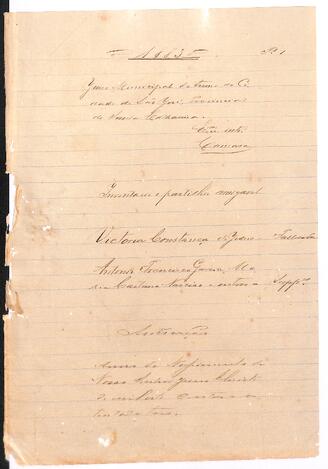 1883
Fl. 1
Juizo Municipal do termo da Ci-
dade de São José, Provincia
de Santa Catharina.
Camara
Inventario e partilha amigavel
Victoria Constança de Jesus Fallecida
Antonio Francisco Garcia, Ma-
ria Caetana e outros Suppes
Autoação
Anno do Nascimento de
Nosso Senhor Jesus Christo
de mil oito centos e oi-
tenta e tres.